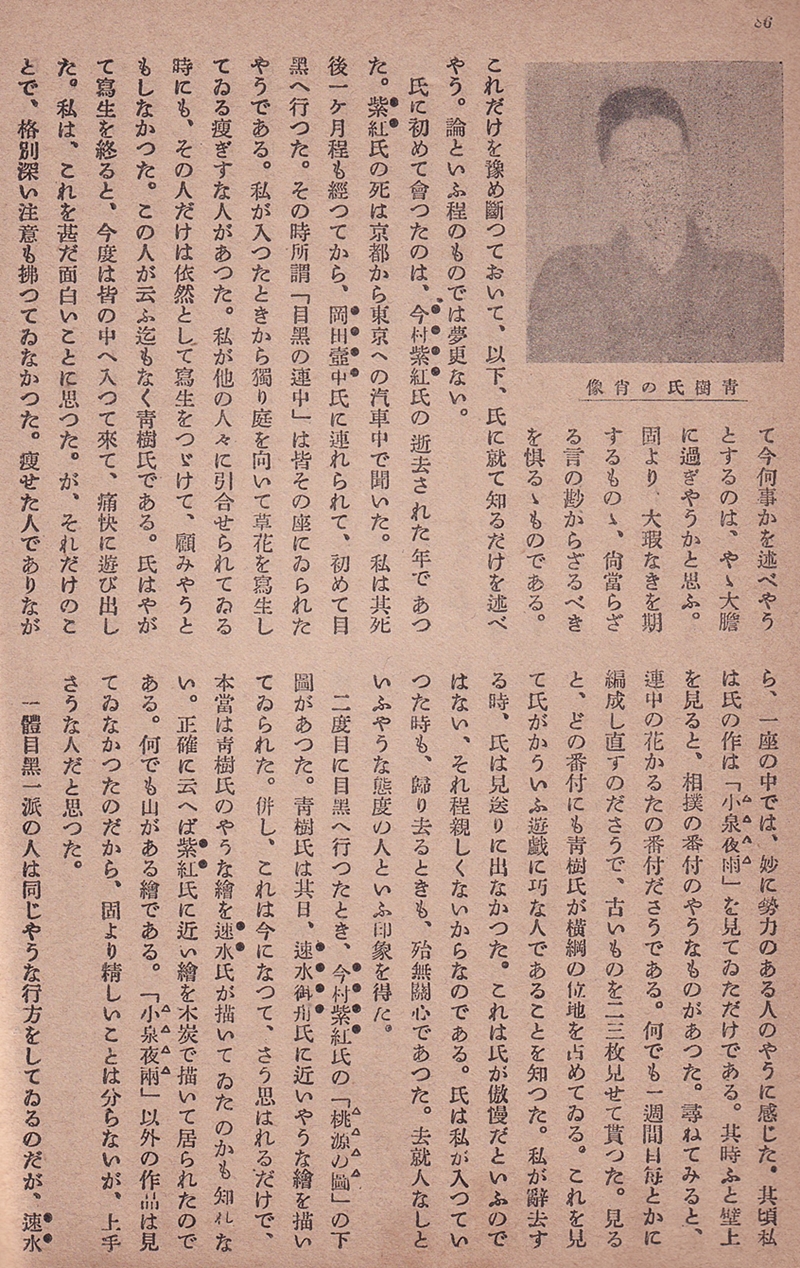 86
青樹氏の肖像
て今何事かを述べやう
とするのは、やゝ大膽
に過ぎやうかと思ふ。
固より、大瑕なきを期
するものゝ、尙當らざ
る言の尠からざるべき
を惧るゝものである。
これだけを豫め斷つておいて、以下、氏に就て知るだけを述べ
やう。論といふ程のものでは夢更ない。
氏に初めて會つたのは、今村紫紅氏の逝去された年であつ
た。紫紅氏の死は京都から東京への汽車中で聞いた。私は其死
後一ケ月程も經つてから、岡田壺中氏に連れられて、初めて目
黑へ行つた。その時所謂「目黑の連中」は皆その座にゐられた
やうである。私が入つたときから獨り庭を向いて草花を寫生し
てゐる瘦ぎすな人があつた。私が他の人々に引合せられてゐる
時にも、その人だけは依然として寫生をつゞけて、顧みやうと
もしなかつた。この人が云ふ迄もなく靑樹氏である。氏はやが
て寫生を終ると、今度は皆の中へ入つて來て、痛快に遊び出し
た。私は、これを甚だ面白いことに思つた。が、それだけのこ
とで、格別深い注意も拂つてゐなかつた。瘦せた人でありなが
ら、一座の中では、妙に勢力のある人のやうに感じた。其頃私
は氏の作は「小泉夜雨」を見てゐただけである。其時ふと壁上
を見ると、相撲の番付のやうなものがあつた。尋ねてみると、
連中の花かるたの番付ださうである。何でも一週間目每とかに
編成し直すのださうで、古いものを二三枚見せて貰つた。見る
と、どの番付にも靑樹氏が橫綱の位地を占めてゐる。これを見
て氏がかういふ遊戲に巧な人であることを知つた。私が辭去す
る時、氏は見送りに出なかつた。これは氏が傲慢だといふので
はない、それ程親しくないからなのである。氏は私が入つてい
つた時も、歸り去るときも、殆無關心であつた。去就人なしと
いふやうな態度の人といふ印象を得た。
二度目に目黑へ行つたとき、今村紫紅氏の「桃源の圖」の下
圖があつた。靑樹氏は其日、速水御舟氏に近いやうな繪を描い
てゐられた。併し、これは今になつて、さう思はれるだけで、
本當は靑樹氏のやうな繪を速水氏が描いてゐたのかも知れな
い。正確に云へば紫紅氏に近い繪を木炭で描いて居られたので
ある。何でも山がある繪である。「小泉夜雨」以外の作品は見
てゐなかつたのだから、固より精しいことは分らないが、上手
さうな人だと思つた。
一體目黑一派の人は同じやうな行方をしてゐるのだが、速水